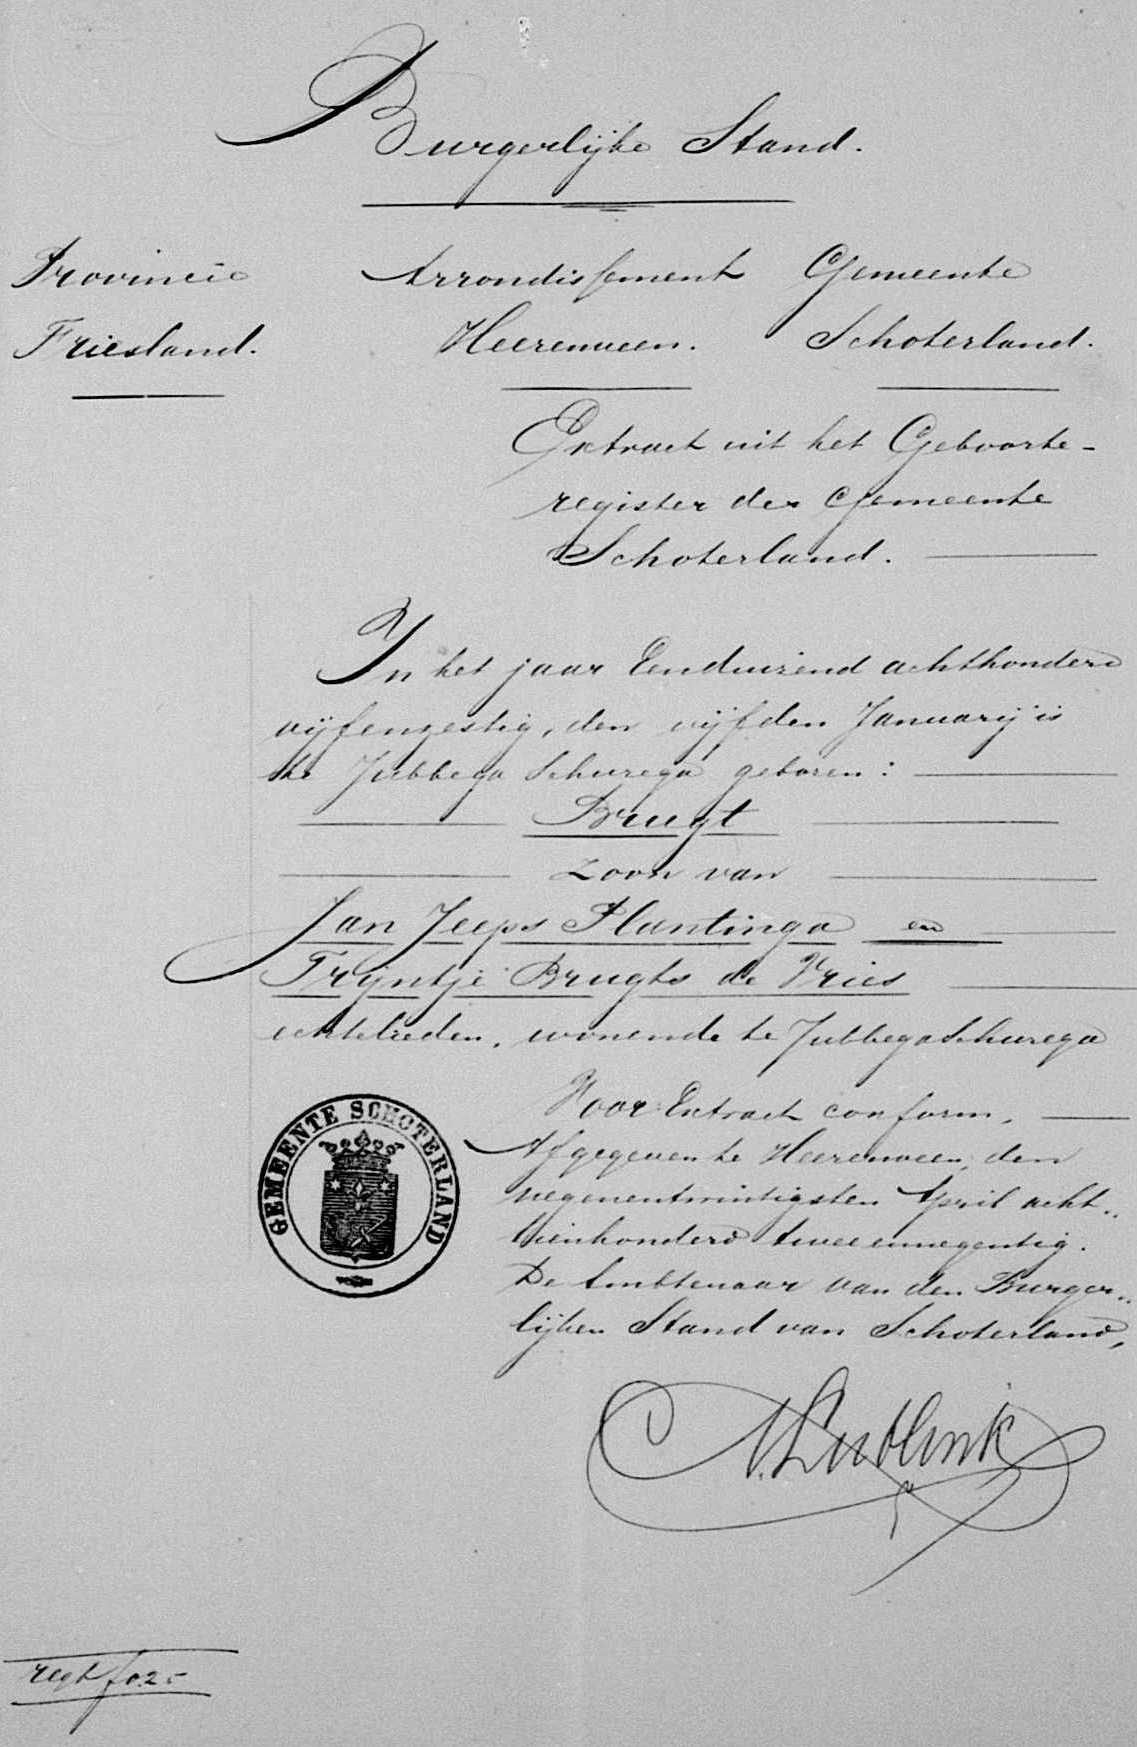 Burgerlijke Stand.
Provincie Arrondissement Gemeente
Friesland. Heerenveen. Schoterland.
Extract uit het Geboorte-
register der Gemeente
Schoterland.
In het jaar Eenduizend achthonderd
vijfenzestig, den vijfden Januarij is
te Jubbega Schurega geboren:
Brugt
zoon van
Jan Jeeps Plantinga en
Trijntje Brugts de Vries
echtelieden, wonende te Jubbega Schurega
Voor Extract conform,
Afgegeven te Heerenveen, den
negenentwintigsten April acht..
tienhonderd tweeennegentig.
De Ambtenaar van den Burger..
lijken Stand van Schoterland,
GEMEENTE SCHOTERLAND
regt f 0.25